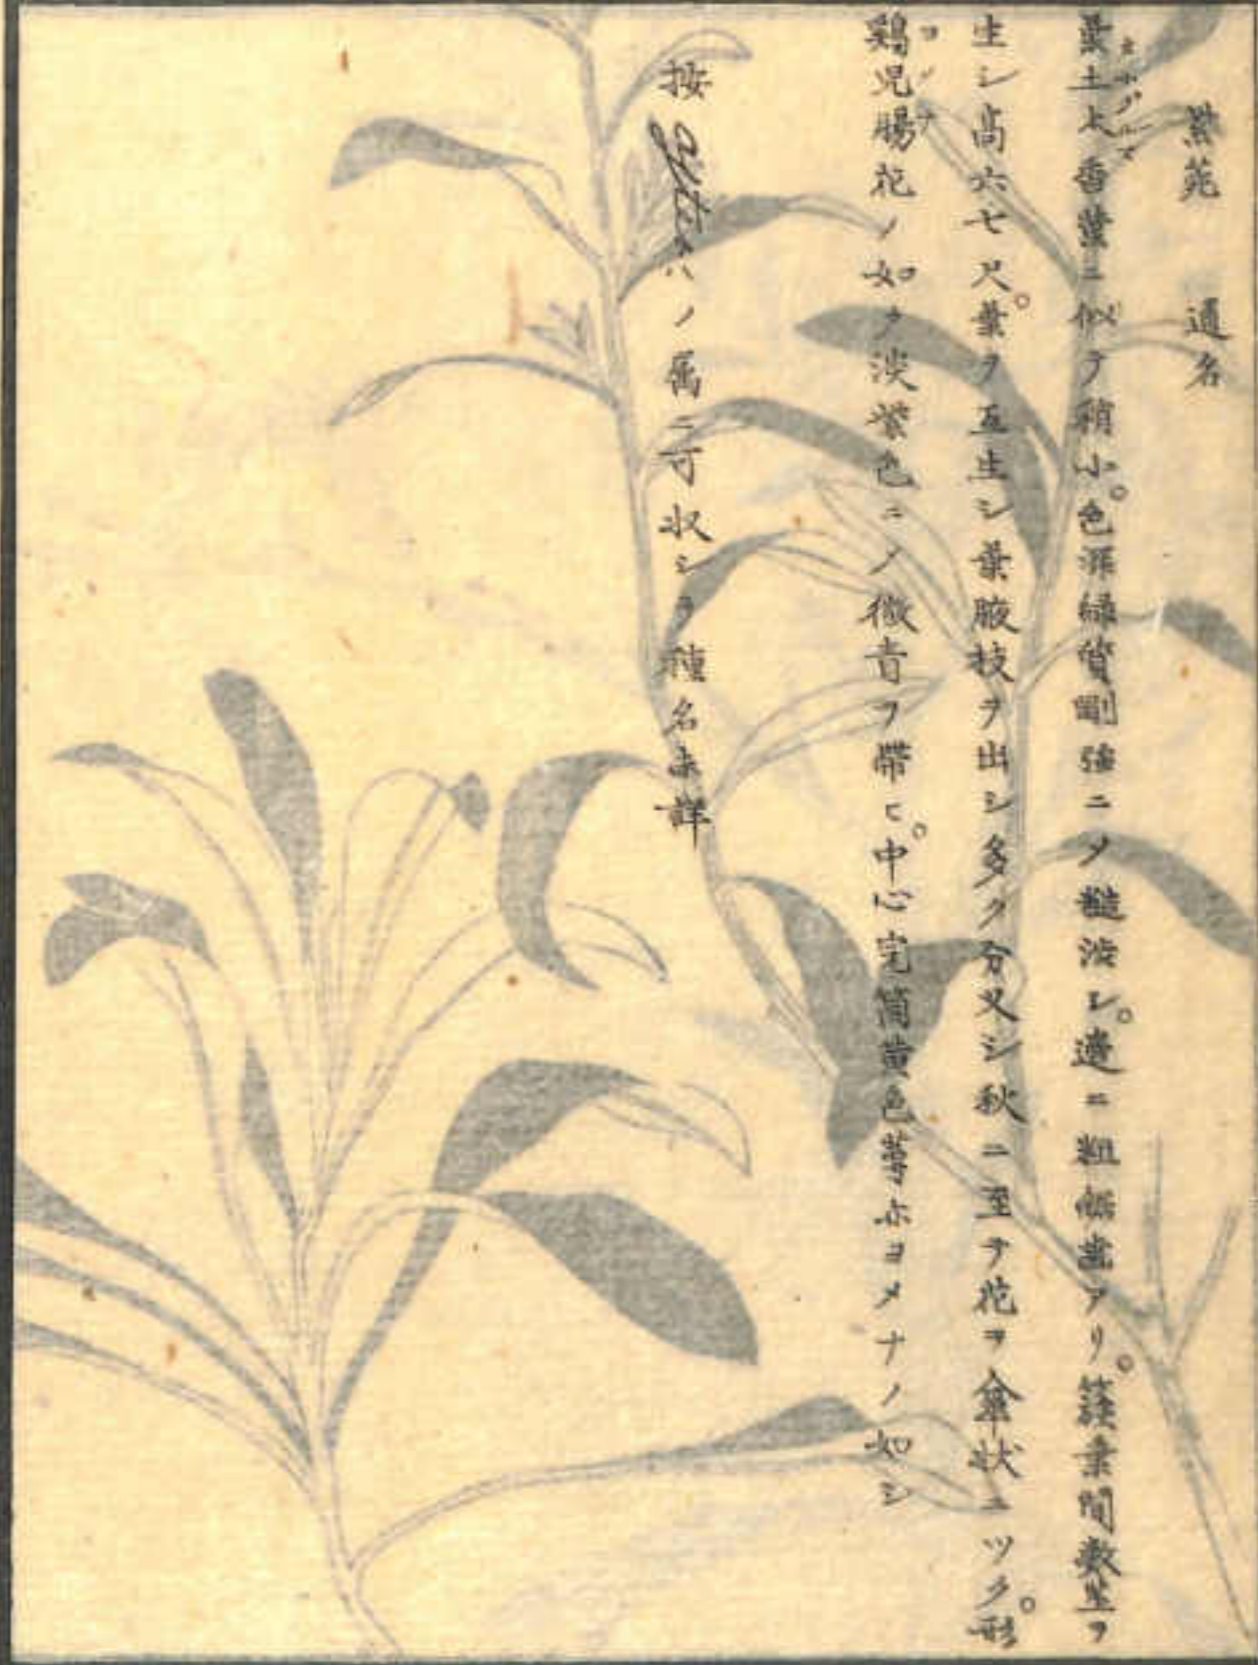 紫菀 通名
葉土木香葉ニ似テ稍小。色深緑質剛強ニメ糙渋シ。邊ニ粗鋸歯アリ。簇葉間數莖ヲ
オホグルマ
生シ高六七尺。葉ヲ互生シ葉腋枝ヲ出シ多ク分叉シ秋ニ至テ花ヲ傘状ニツク。形
鶏児腸花ノ如ク淡紫色ニメ微青ヲ帶ヒ。中心完筒黄色蕚亦ヨメナノ如シ
ヨメナ
按 ノ属ニ可収シテ種名未詳